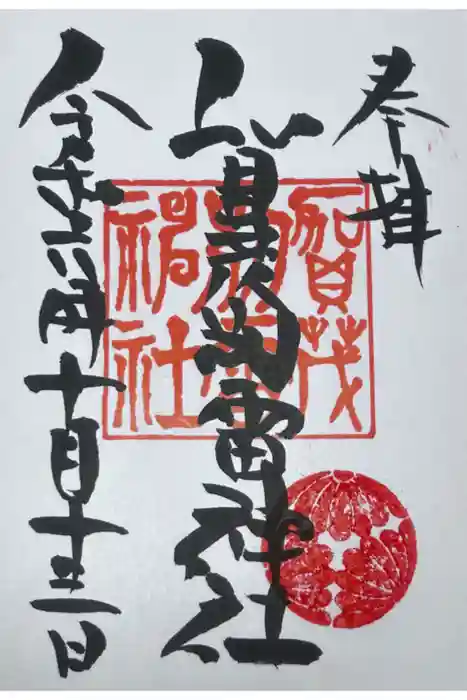 奉拝
賀茂別雷神社
令和二年十月十二日
賀茂
神社